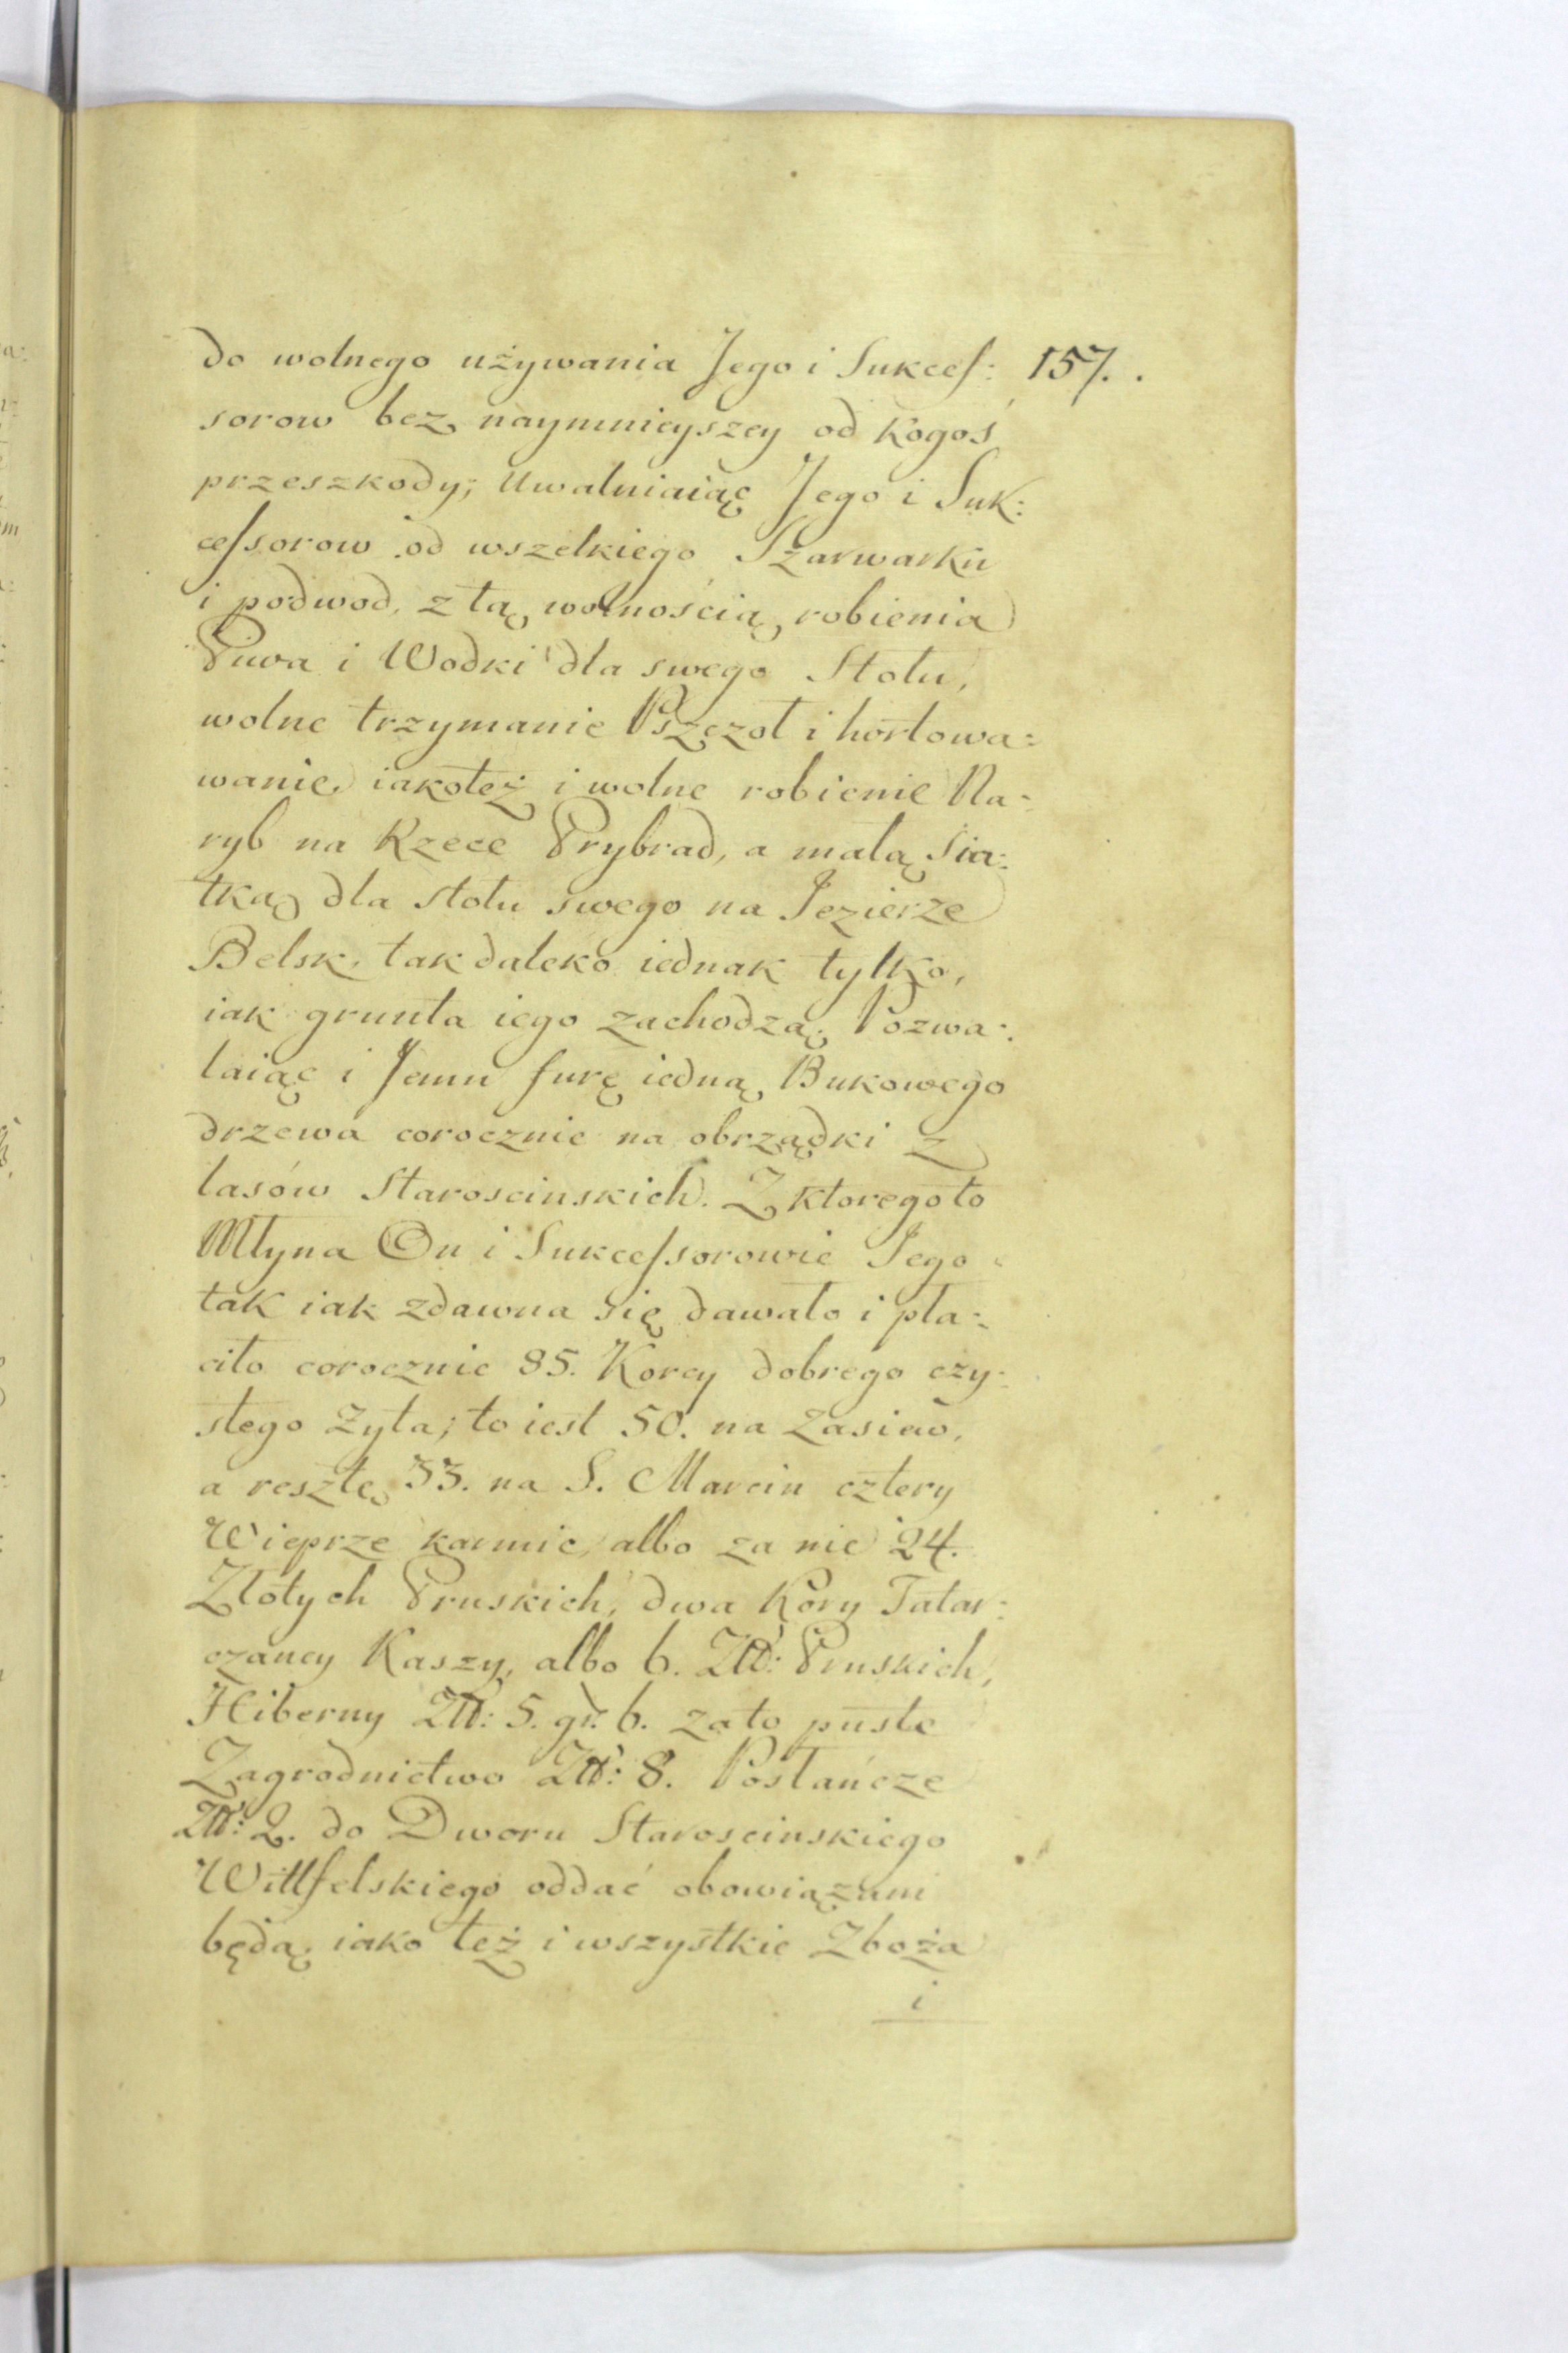 do wolnego używania Jego i Sukces: 157.
sorow bez naymnieyszey od kogoś
przeszkody; Uwalniaiąc Jego i Suk:
cessorow od wszelkiego Szarwarku
i podwod, z tą wolnością robienia
Piwa i Wodki dla swego Stołu,
wolne trzymanie Pszczoł i hortowa:
wanie, iakoteż i wolne robienie Na:
ryb na Rzece Prybrad, a małą Sia:
tką dla stołu swego na Jezierze
Belsk, tak daleko iednak tylko,
iak grunta iego zachodzą. Pozwa:
laiąc i Jemu furę iedną Bukowego
drzewa corocznie na obrządki z
lasów Staroscinskich. Z ktorego to
Młyna On i Sukcessorowie Jego
tak iak zdawna się dawało i pła:
ciło corocznie 85. Korcy dobrego czy:
stego Zyta; to iest 50. na Zasiew,
a resztę 33. na S. Marcin cztery
Wieprze karmic, albo za nie 24.
Złotych Pruskich, dwa Kory Tatar:
czaney Kaszy, albo 6. Zł: Pruskich,
Hiberny Zł: 5. gr. 6. za to puste
Zagrodnictwo Zł: 8. Posłańcze
Zł: 2. do Dworu Staroscinskiego
Wittfelskiego oddać obowiązani
będą, iako też i wszystkie Zboża
i